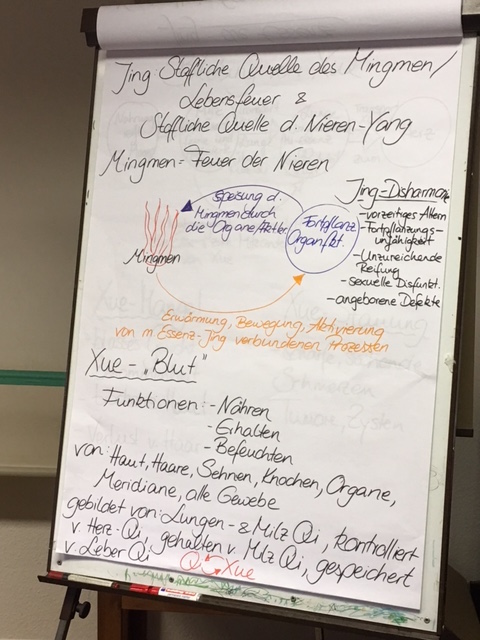 Jing Stoffliche Quelle des Mingmen/
Lebensfeuer &
Stoffliche Quelle d. Nieren-Yang
Mingmen = Feuer der Nieren
Speisung d.
Mingmen durch
die Organe
Mingmen
Fortpflanz.
Organfkt.
Jing-Disharmon
- vorzeitiges Altern
- Fortpflanzungs-
unfähigkeit
- Unzureichende
Reifung
- sexuelle Disfunkt.
- angeborene Defekte
Erwärmung, Bewegung, Aktivierung
von m Essenz-Jing verbundenen Prozessen
Xue - „Blut"
Funktionen: - Nähren
- Erhalten
- Befeuchten
von: Haut, Haare, Sehnen, Knochen, Organe,
Meridiane, alle Gewebe
gebildet von: Lungen- & Milz Qi, kontrolliert
v. Herz-Qi, gehalten v. Milz Qi, gespeichert
v. Leber Qi
Qi Xue